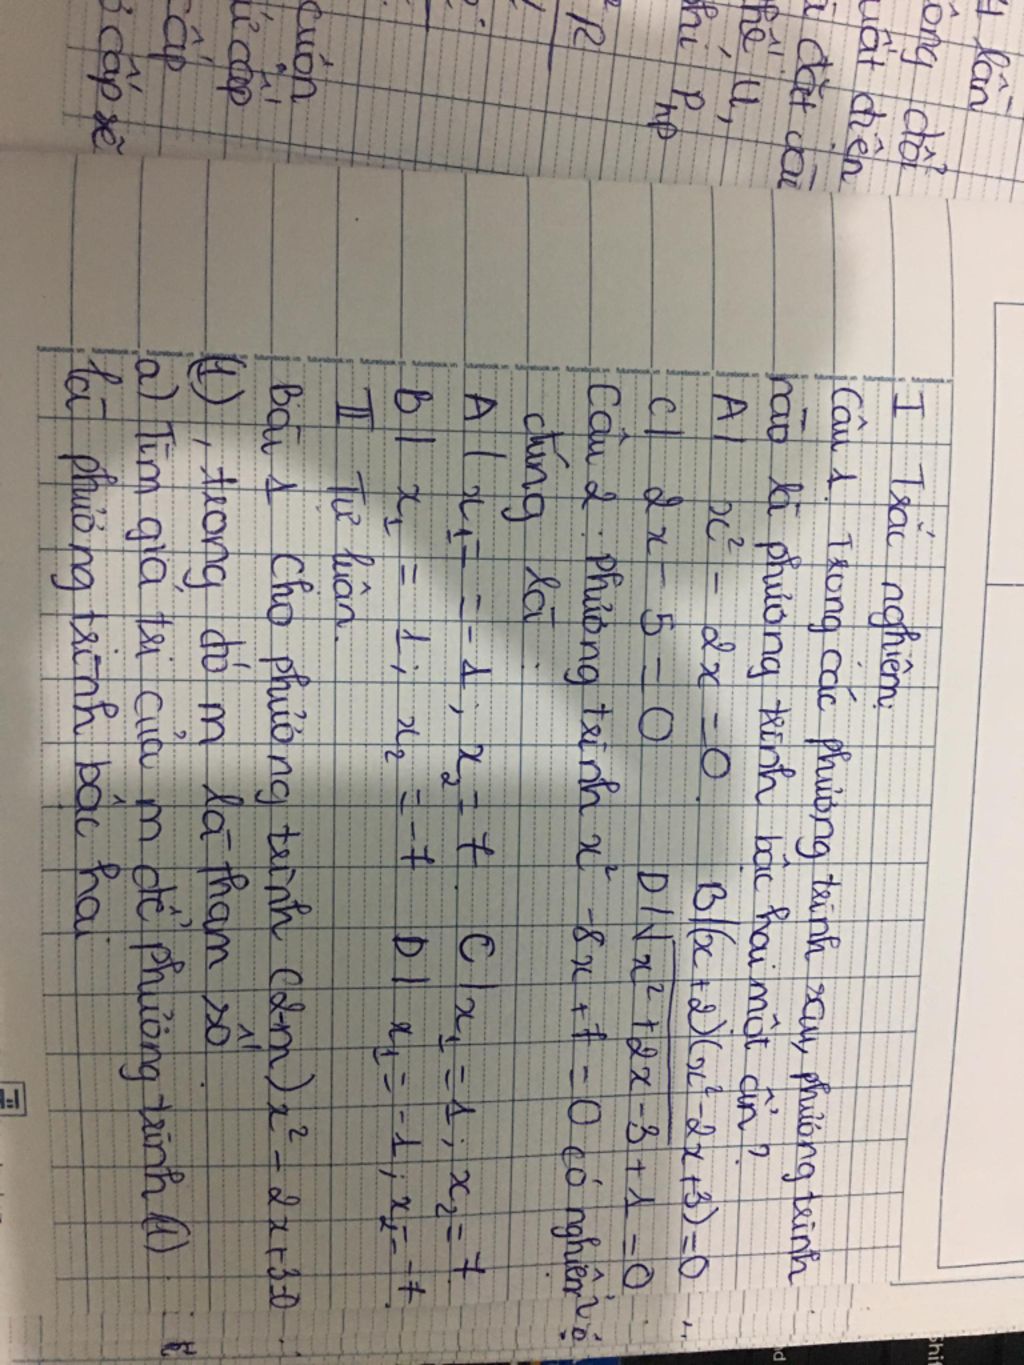 4 lần
ông đổi
uất điện
i đặt vào
thế U,
hí Php
R
cuộn
ứ cấp
cấp
ơ cấp sẽ
I Trắc nghiệm:
Câu 1. Trong các phương trình sau, phương trình
nào là phương trình bậc hai một ẩn?
A| x² - 2x = 0. B|(x+2)(x²-2x+3)=0
C| 2x - 5 = 0 D|√x²+2x-3+1=0
Câu 2: phương trình x² -8x+7=0 có nghiệm
đúng là:
A| x₁ = -1; x₂ = 7. C| x₁=1; x₂=7
B| x₁ = 1; x₂ = -7 D| x₁=-1; x₂=-7.
II Tự luận.
Bài 1 Cho phương trình (2-m)x² - 2x+3=0
(1), trong đó m là tham số.
a) Tìm giá trị của m để phương trình (1)
là phương trình bậc hai